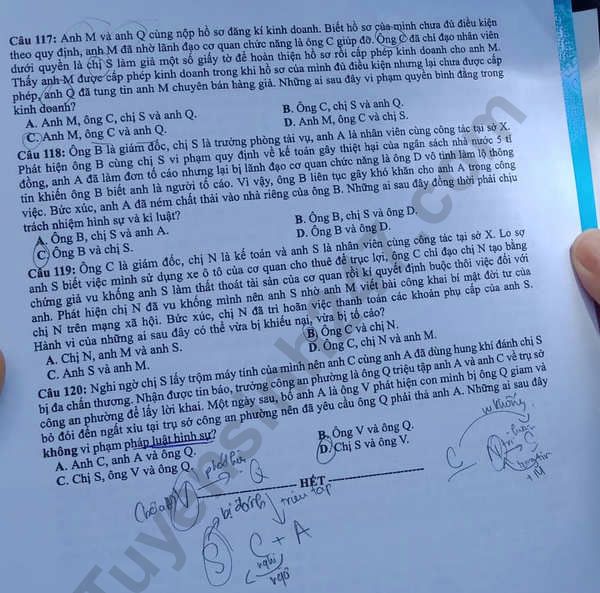 Câu 117: Anh M và anh Q cùng nộp hồ sơ đăng kí kinh doanh. Biết hồ sơ của mình chưa đủ điều kiện
theo quy định, anh M đã nhờ lãnh đạo cơ quan chức năng là ông C giúp đỡ. Ông C đã chỉ đạo nhân viên
dưới quyền là chị S làm giả một số giấy tờ để hoàn thiện hồ sơ rồi cấp phép kinh doanh cho anh M.
Thấy anh M được cấp phép kinh doanh trong khi hồ sơ của mình đủ điều kiện nhưng lại chưa được cấp
phép, anh Q đã tung tin anh M chuyên bán hàng giả. Những ai sau đây vi phạm quyền bình đẳng trong
kinh doanh?
A. Anh M, ông C, chị S và anh Q. B. Ông C, chị S và anh Q.
C. Anh M, ông C và anh Q. D. Anh M, ông C và chị S.
Câu 118: Ông B là giám đốc, chị S là trưởng phòng tài vụ, anh A là nhân viên cùng công tác tại sở X.
Phát hiện ông B cùng chị S vi phạm quy định về kế toán gây thiệt hại của ngân sách nhà nước 5 tỉ
đồng, anh A đã làm đơn tố cáo nhưng lại bị lãnh đạo cơ quan chức năng là ông D vô tình làm lộ thông
tin khiến ông B biết anh là người tố cáo. Vì vậy, ông B liên tục gây khó khăn cho anh A trong công
việc. Bức xúc, anh A đã ném chất thải vào nhà riêng của ông B. Những ai sau đây đồng thời phải chịu
trách nhiệm hình sự và kỉ luật?
A. Ông B, chị S và anh A. B. Ông B, chị S và ông D.
C. Ông B và chị S. D. Ông B và ông D.
Câu 119: Ông C là giám đốc, chị N là kế toán và anh S là nhân viên cùng công tác tại sở X. Lo sợ
anh S biết việc mình sử dụng xe ô tô của cơ quan cho thuê để trục lợi, ông C chỉ đạo chị N tạo bằng
chứng giả vu khống anh S làm thất thoát tài sản của cơ quan rồi kí quyết định buộc thôi việc đối với
anh. Phát hiện chị N đã vu khống mình nên anh S nhờ anh M viết bài công khai bí mật đời tư của
chị N trên mạng xã hội. Bức xúc, chị N đã trì hoãn việc thanh toán các khoản phụ cấp của anh S.
Hành vi của những ai sau đây có thể vừa bị khiếu nại, vừa bị tố cáo?
A. Chị N, anh M và anh S. B. Ông C và chị N.
C. Anh S và anh M. D. Ông C, chị N và anh M.
Câu 120: Nghi ngờ chị S lấy trộm máy tính của mình nên anh C cùng anh A đã dùng hung khí đánh chị S
bị đa chấn thương. Nhận được tin báo, trưởng công an phường là ông Q triệu tập anh A và anh C về trụ sở
công an phường để lấy lời khai. Một ngày sau, bố anh A là ông V phát hiện con mình bị ông Q giam và
bỏ đói đến ngất xỉu tại trụ sở công an phường nên đã yêu cầu ông Q phải thả anh A. Những ai sau đây
không vi phạm pháp luật hình sự?
A. Anh C, anh A và ông Q. B. Ông V và ông Q.
C. Chị S, ông V và ông Q. D. Chị S và ông V.
HẾT
V
Q
bị đánh
triệu tập
S C + A
nghi
ngờ
C
vu khống
Tuyensinh247.com